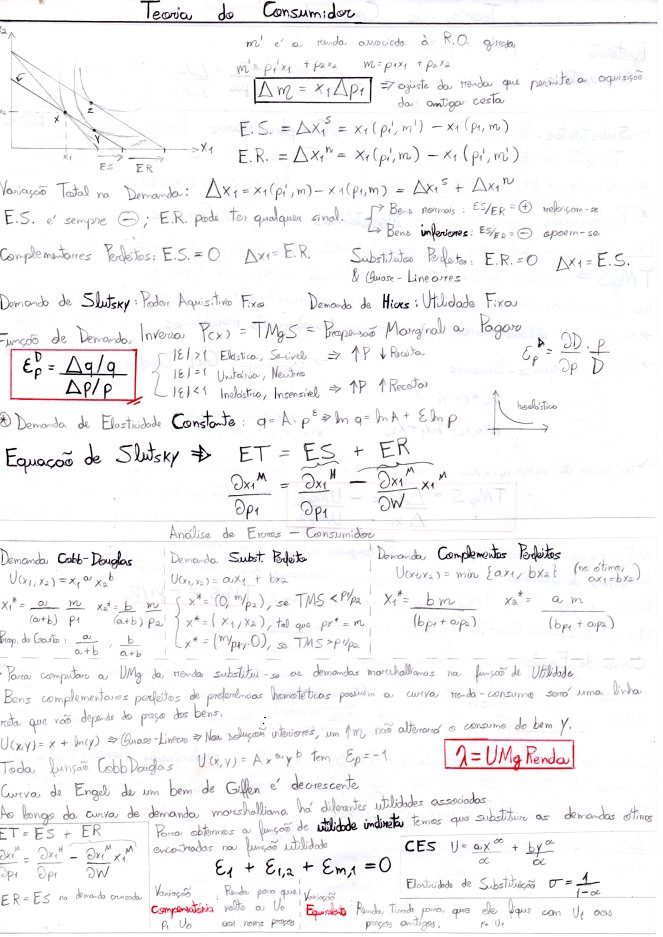 Teoria do Consumidor
m' é a renda associada à R.O. girada
m' = p1'x1 + p2x2   m = p1x1 + p2x2
Δm = x1Δp1 ⇒ ajuste da renda que permite a aquisição
da antiga cesta
x2
x
z
y
x1
X1
ES
ER
E.S. = Δx1ˢ = x1(p1', m') − x1(p1, m)
E.R. = Δx1ⁿ = x1(p1', m) − x1(p1', m')
Variação Total na Demanda: Δx1 = x1(p1', m) − x1(p1, m) = Δx1ˢ + Δx1ⁿ
E.S. é sempre ⊖; E.R. pode ter qualquer sinal.
Bens normais: ES/ER = ⊕ reforçam-se
Bens inferiores: ES/ER = ⊖ opoem-se
Complementares Perfeitos: E.S. = 0   Δx1 = E.R.
Substitutos Perfeitos: E.R. = 0   Δx1 = E.S.
& Quase-Lineares
Demanda de Slutsky: Poder Aquisitivo Fixo   Demanda de Hicks: Utilidade Fixa
Função de Demanda Inversa P(x) = TMgS = Propensão Marginal a Pagar
εpᴰ = Δq/q / Δp/p
|ε| > 1 Elástica, Sensível ⇒ ↑P ↓Receita
|ε| = 1 Unitária, Neutra
|ε| < 1 Inelástica, Insensível ⇒ ↑P ↑Receita
εpᴰ = ∂D/∂p · p/D
⊛ Demanda de Elasticidade Constante: q = A·p^ε ⇒ ln q = ln A + ε ln p
isoelástica
Equação de Slutsky ⇒ ET = ES + ER
∂x1ᴹ/∂p1 = ∂x1ᴴ/∂p1 − ∂x1ᴹ/∂W x1ᴹ
Análise de Erros – Consumidor
Demanda Cobb-Douglas
U(x1, x2) = x1ᵃ x2ᵇ
x1* = a/(a+b) m/p1   x2* = b/(a+b) m/p2
Prop. do Gasto: a/a+b, b/a+b
Demanda Subst. Perfeito
U(x1, x2) = ax1 + bx2
x* = (0, m/p2), se TMS < p1/p2
x* = (x1, x2), tal que px* = m
x* = (m/p1, 0), se TMS > p1/p2
Demanda Complementos Perfeitos
U(x1, x2) = min {ax1, bx2} (no ótimo, ax1 = bx2)
x1* = bm/(bp1 + ap2)   x2* = am/(bp1 + ap2)
· Para computar a UMg da renda substitui-se as demandas marshallianas na função de Utilidade
Bens complementares perfeitos de preferências homotéticas possuem a curva renda-consumo será uma linha
reta que não depende do preço dos bens.
U(x,y) = x + ln(y) ⇒ Quase-Linear ⇒ Nas soluções interiores, um ↑m não alterará o consumo do bem Y.
Toda função CobbDouglas   U(x,y) = A xᵅ yᵇ tem εp = −1
λ = UMg Renda
Curva de Engel de um bem de Giffen é decrescente
Ao longo da curva de demanda marshalliana há diferentes utilidades associadas.
ET = ES + ER
∂x1ᴹ/∂p1 = ∂x1ᴴ/∂p1 − ∂x1ᴹ/∂W x1ᴹ
ER = ES na demanda cruzada
Para obtermos a função de utilidade indireta temos que substituir as demandas ótimas
encontradas na função utilidade
ε1 + ε1,2 + εm,1 = 0
CES U = ax^α/α + by^α/α
Elasticidade de Substituição σ = 1/1−α
Variação Compensatória
Renda para que volte a U0 aos novos preços
P1 U0
Variação Equivalente
Renda para que ele fique com U1 aos preços antigos.
P0 U1